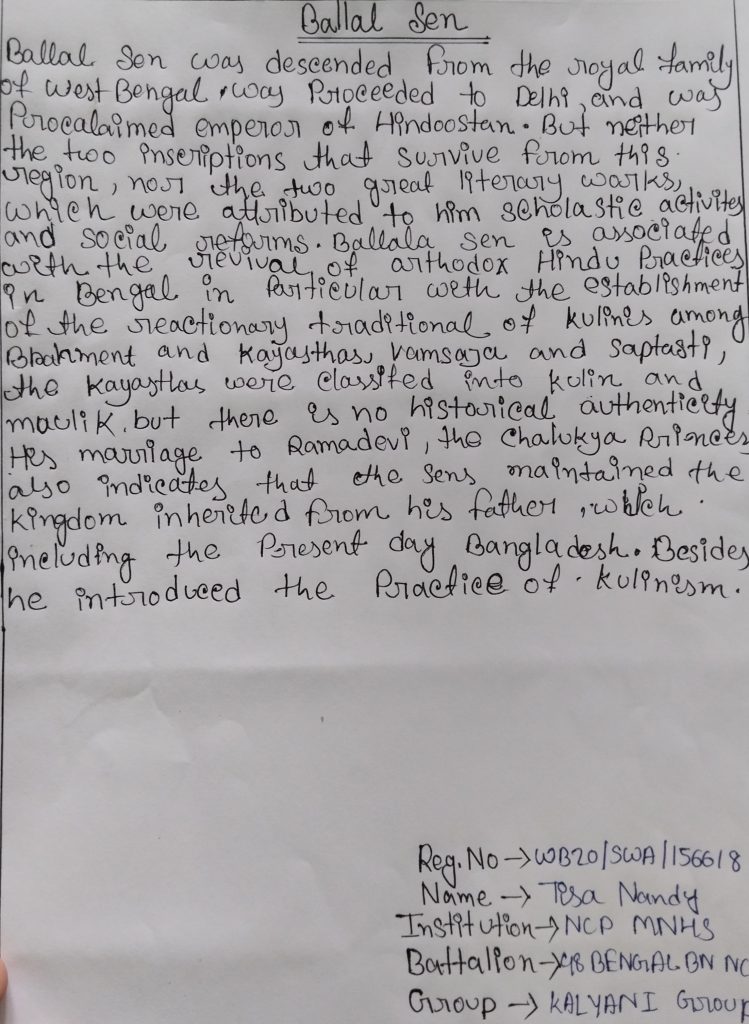 Ballal Sen
Ballal Sen was descended from the royal family
of West Bengal, way Proceeded to Delhi, and was
Porocalaimed emperor of Hindoostan. But neither
the two inseriptions that survive from this.
region, nor the two great literary warks,
which were attributed to him scholastic activites
and social reforms. Ballala Sen is associated
with the revival of orthodox Hindu Practices
in Bengal in Particular with the establishment
of the reactionary traditional of Kulinis among
Brahment and Kayasthas, Vamsaja and Saptasti,
the Kayasthas were classifed into Kulin and
maulik. but there is no historical authenticity
His marriage to Ramadevi, the Chalukya Princes
also indicates that the Sens maintained the
kingdom inherited from his father, which.
including the Present day Bangladesh. Besides
he introduced the Practice of. Kulinism.
Reg. No → WB20/SWA/156618
Name → Tisa Nandy
Institution → NCP MNHS
Battalion → 48 BENGAL BN NC
Group → KALYANI Group